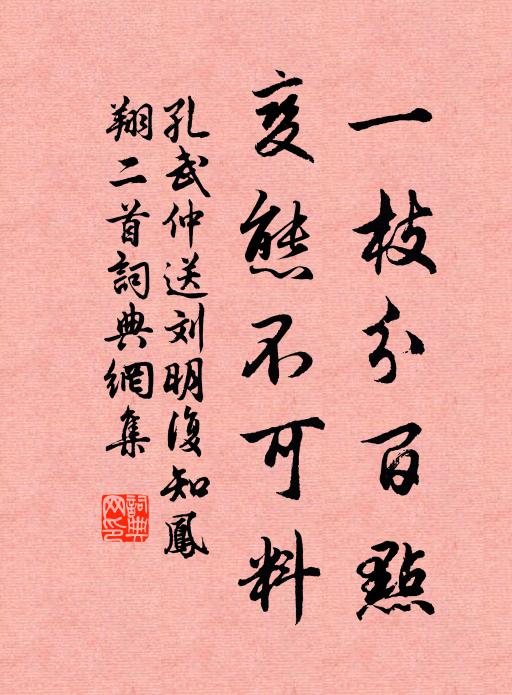 一枝分百點
变態不可料
孔武仲送刘明復知鳳
翔二首詞典網集
詞典
网印